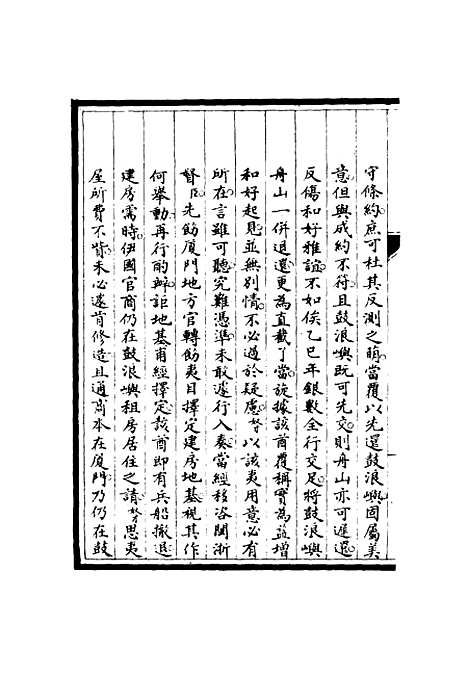 守條約庶可杜其反測之萌當覆以先還鼓浪嶼固屬美
意但與成約不符且鼓浪嶼既可先交則舟山亦可遲還
反傷和好雅誼不如俟乙巳年銀數全行交足將鼓浪嶼
舟山一併退還更為直截了當旋據該酋覆稱實為益增
和好起見並無別情不必過於疑慮等以該夷用意必有
所在言雖可聽究難憑準未敢遽行入奏當經移咨閩浙
督臣先飭厦門地方官轉飭夷目擇定建房地基視其作
何舉動再行酌辦詎地基甫經擇定該酋即有兵船撤退
建房需時伊國官商仍在鼓浪嶼租房居住之請等思夷
屋所費不貲未必遽肯修造且通商本在厦門乃仍在鼓